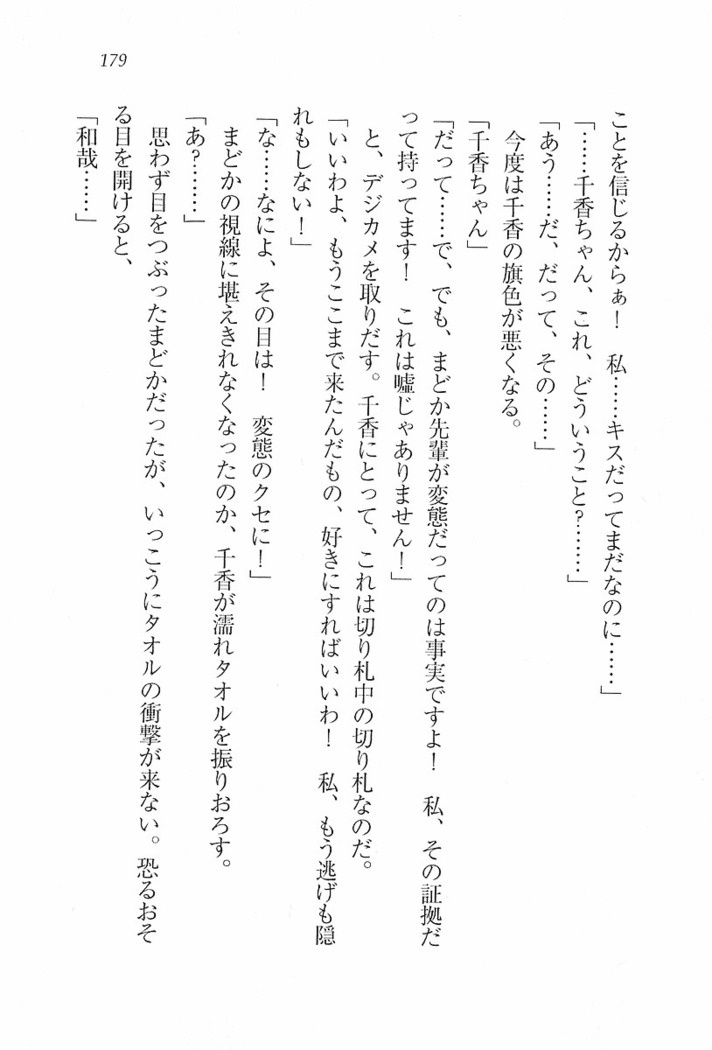 179
ことを信じるからぁ！　私……キスだってまだなのに……」
「……千香ちゃん、これ、どういうこと？……」
「あう……だ、だって、その……」
　今度は千香の旗色が悪くなる。
「千香ちゃん」
「だって……で、でも、まどか先輩が変態だってのは事実ですよ！　私、その証拠だ
って持ってます！　これは嘘じゃありません！」
　と、デジカメを取りだす。千香にとって、これは切り札中の切り札なのだ。
「いいわよ、もうここまで来たんだもの、好きにすればいいわ！　私、もう逃げも隠
れもしない！」
「な……なによ、その目は！　変態のクセに！」
　まどかの視線に堪えきれなくなったのか、千香が濡れタオルを振りおろす。
「あ？……」
　思わず目をつぶったまどかだったが、いっこうにタオルの衝撃が来ない。恐るおそ
る目を開けると、
「和哉……」